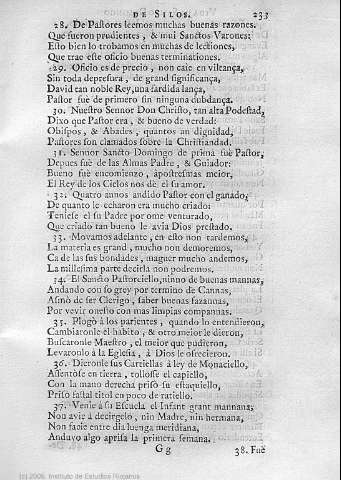 DE SILOS. 233
28. De Pastores leemos muchas buenas razones.
Que fueron prudientes, & mui Sanctos Varones:
Esto bien lo trobamos en muchas de lectiones,
Que trae este oficio buenas terminationes.
29. Oficio es de precio, non caie en viltança,
Sin toda depresura, de grand significança,
David tan noble Rey, una fardida lança,
Pastor fuè de primero sin ninguna dubdança.
30. Nuestro Sennor Don Christo, tan alta Podestad,
Dixo que Pastor era, & bueno de verdad:
Obispos, & Abades, quantos an dignidad,
Pastores son clamados sobre la Christiandad.
31. Sennor Sancto Domingo de prima fuè Pastor,
Depues fuè de las Almas Padre, & Guiador:
Bueno fuè encomienzo, apostremas meior,
El Rey de los Cielos nos dè el su amor.
32. Quatro annos andido Pastor con el ganado,
De quanto le echaron era mucho criado:
Teniese el su Padre por ome venturado,
Que criado tan bueno le avia Dios prestado.
33. Movamos adelante, en esto non tardemos,
La materia es grand, mucho non demoremos,
Ca de las sus bondades, maguer mucho andemos,
La millesima parte decirla non podremos.
34. El Sancto Pastorciello, ninno de buenas mannas,
Andando con so grey por termino de Cannas,
Asmò de ser Clerigo, saber buenas fazannas,
Por vevir onesto con mas limpias compannas.
35. Plogò à los parientes, quando lo entendieron,
Cambiaronle el habito, & otro meior le dieron,
Buscaronle Maestro, el meior que pudieron,
Levaronlo à la Eglesia, à Dios le ofrecieron.
36. Dieronle sus Cartiellas à ley de Monaciello,
Assentòse en tierra, tollosse el capiello,
Con la mano derecha prisò su estaquiello,
Priso fastal titol en poco de ratiello.
37. Venie à su Escuela el Infant grant mannana,
Non avie à decirgelo, nin Madre, nin hermana,
Non facie entre dia luenga meridiana,
Anduvo algo aprisa la primera semana.
G g 38. Fuè
(c) 2006, Instituto de Estudios Riojanos